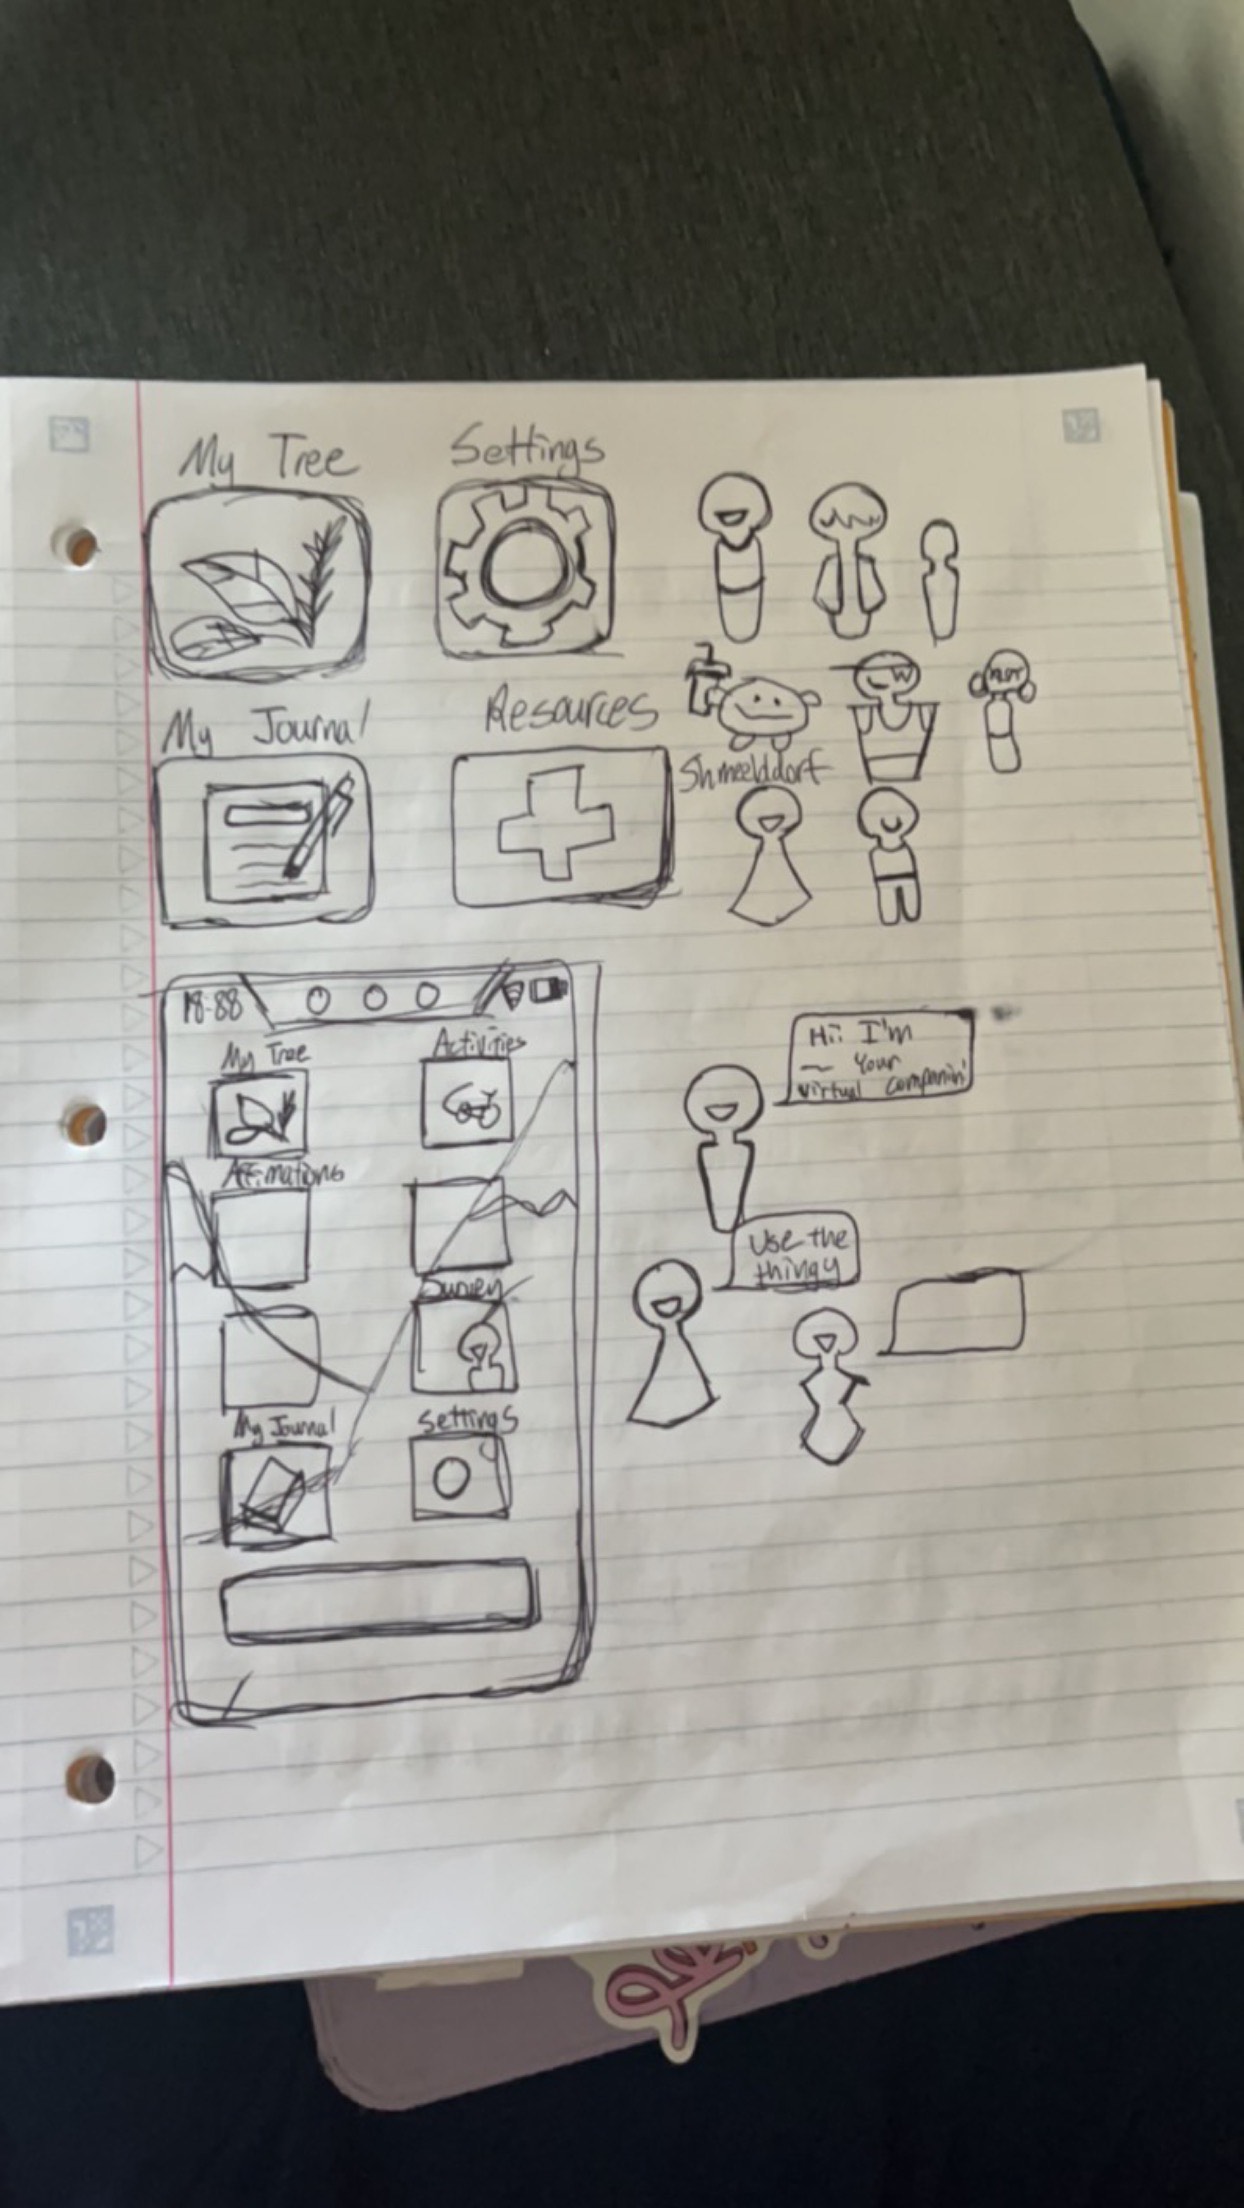 My Tree
Settings
My Journal
Resources
Shmeelddorf
18:88
My Tree
Activities
Affimations
Survey
My Journal
Settings
Hi: I'm
Your
virtual companin
Use the
thingy